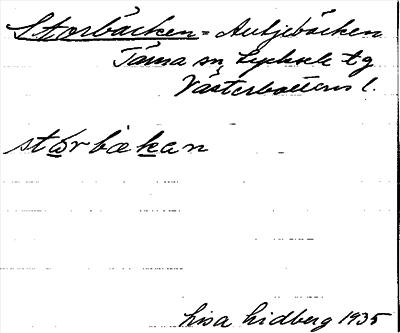 Storbäcken = Autjebäcken
Tärna sn, Lycksele tg
Västerbottens l.
stårbækan
Lisa Lidberg 1935